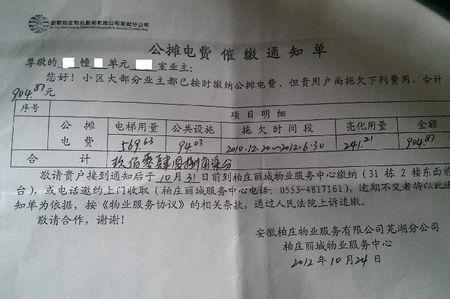 安徽柏庄物业服务有限公司芜湖分公司
公摊电费催缴通知单
尊敬的 幢 单元 室业主：
您好！小区大部分业主都已按时缴纳公摊电费，但贵用户尚拖欠下列费用，合计
904.87元
序号 项目明细
公摊电费 电梯用量 公共设施 拖欠时间段 亮化用量 金额
569.63 94.03 2010.12.20~2012.6.30 241.21 904.87
合计 玖佰零肆圆捌角柒分
敬请贵户接到通知后于10月31日前到柏庄丽城服务中心缴纳（31栋2楼东面前
台），或电话邀约上门收取（柏庄丽城服务中心电话：0553-4817161），逾期不交者将以此通
知单为依据，按《物业服务协议》的相关条款，通过人民法院上诉追缴。
敬请合作，谢谢！
安徽柏庄物业服务有限公司芜湖分公司
柏庄丽城物业服务中心
2012年10月24日